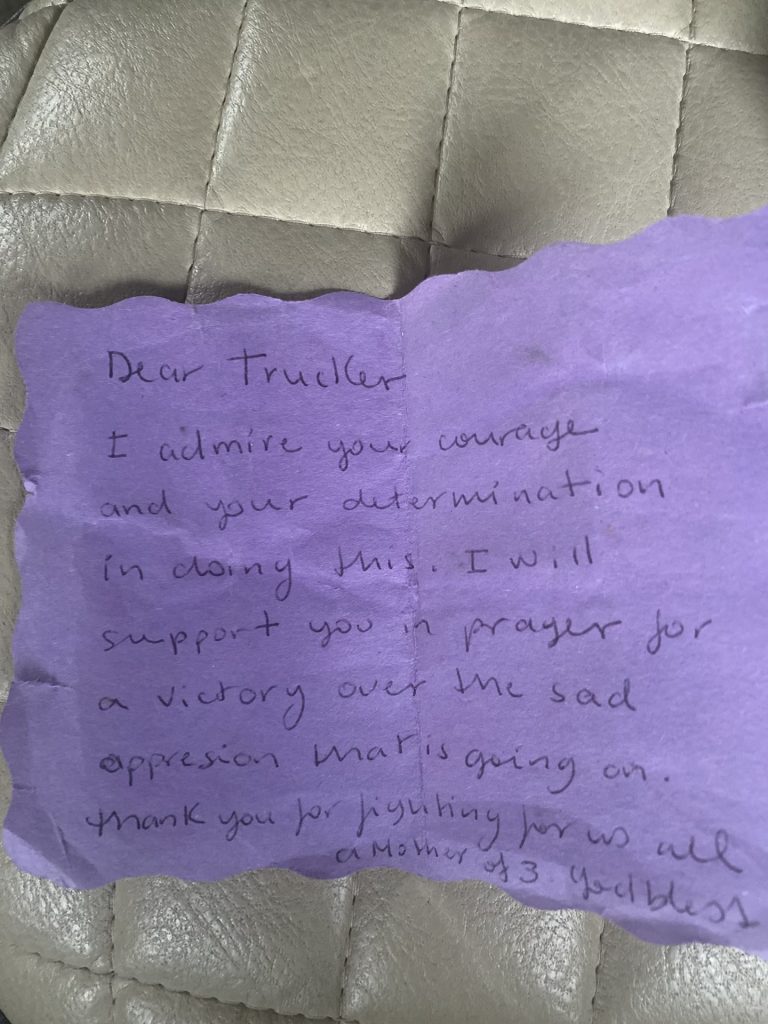 Dear Trucker
I admire your courage
and your determination
in doing this. I will
support you in prayer for
a victory over the sad
oppresion that is going on.
thank you for fighting for us all
a Mother of 3 Godbless